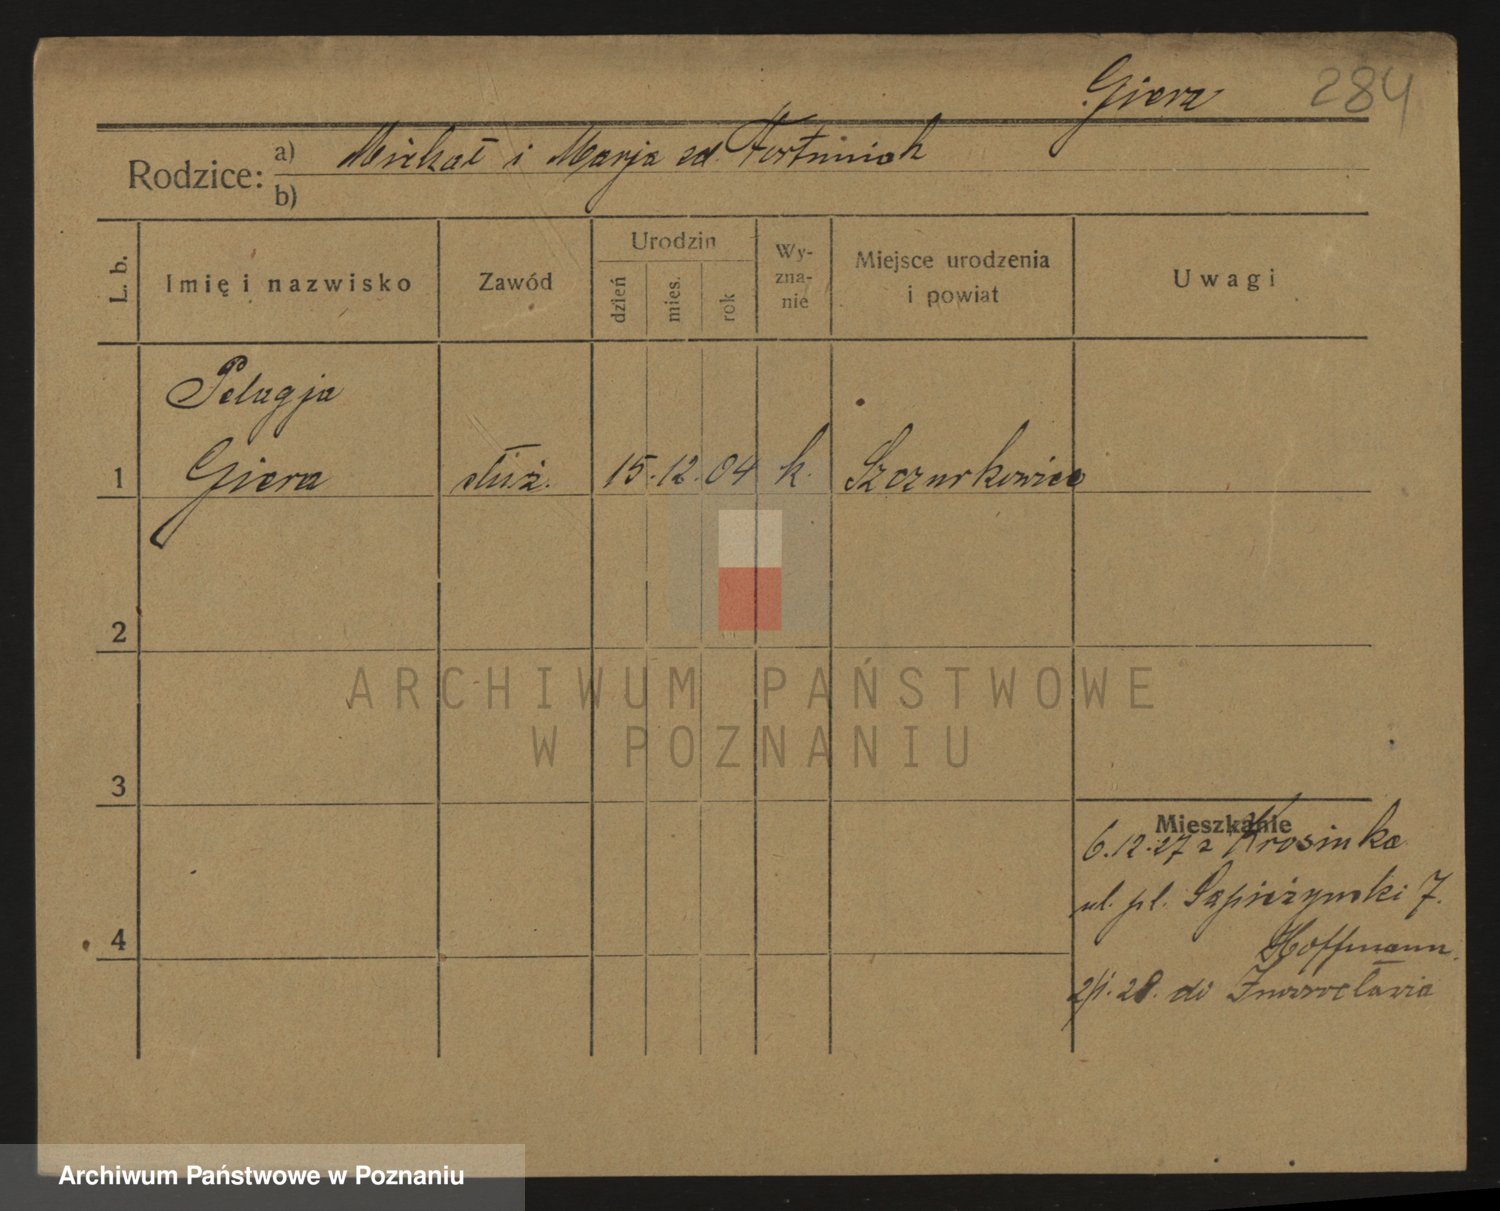 Giera 284
Rodzice: a) Michał i Marja zd.
b)
L. b. Imię i nazwisko Zawód Urodzin dzień mies. rok Wy-zna-nie Miejsce urodzenia i powiat Uwagi
Pelagja
1 Giera służ. 15. 12. 04 k. Szczurkowice
2
ARCHIWUM PAŃSTWOWE
W POZNANIU
3
Mieszkanie
6.12.27 z Krosinka
ul. pl. Sapieżynski 7.
4
Hoffmann.
28. do Inowrocławia
Archiwum Państwowe w Poznaniu